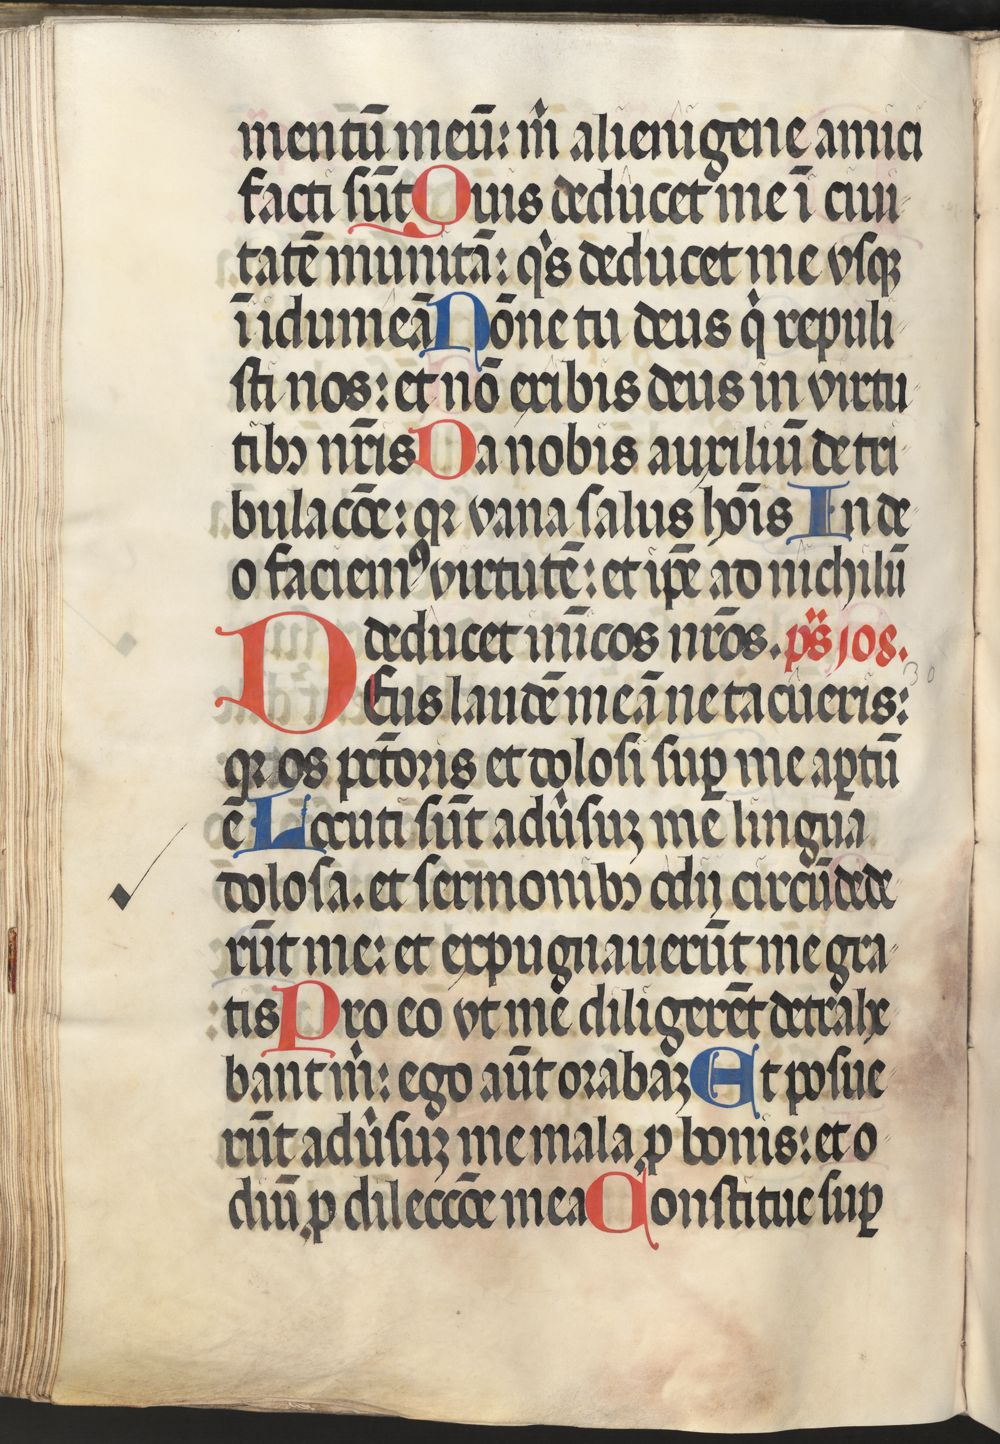 mentū meū: m̄ alienigene amici
facti sūt Quis deducet me ī ciui
tatē munitā: qⁱs deducet me vsqꝫ
ī idumeā Nōne tu deus qⁱ repuli
sti nos: et nō exibis deus in virtu
tibꝰ nr̄is Da nobis auxiliū de tri
bulacōe: qꝛ vana salus hōis In de
o faciemꝰ virtutē: et ip̄e ad nichilū
deducet inīicos nr̄os. pš 108.
DEus laudē meā ne tacueris:
30
qꝛ os pctōris et dolosi suꝑ me aꝑtū
ē Locuti sūt adūsuꝫ me lingua
dolosa. et sermonibꝰ odij circūdede
rūt me: et expugnauerūt me gra
tis Pro eo vt me diligerēt detrahe
bant m̄: ego aūt orabaꝫ Et posue
rūt adūsuꝫ me mala ꝓ bonis: et o
diū ꝓ dileccōe mea Constitue suꝑ